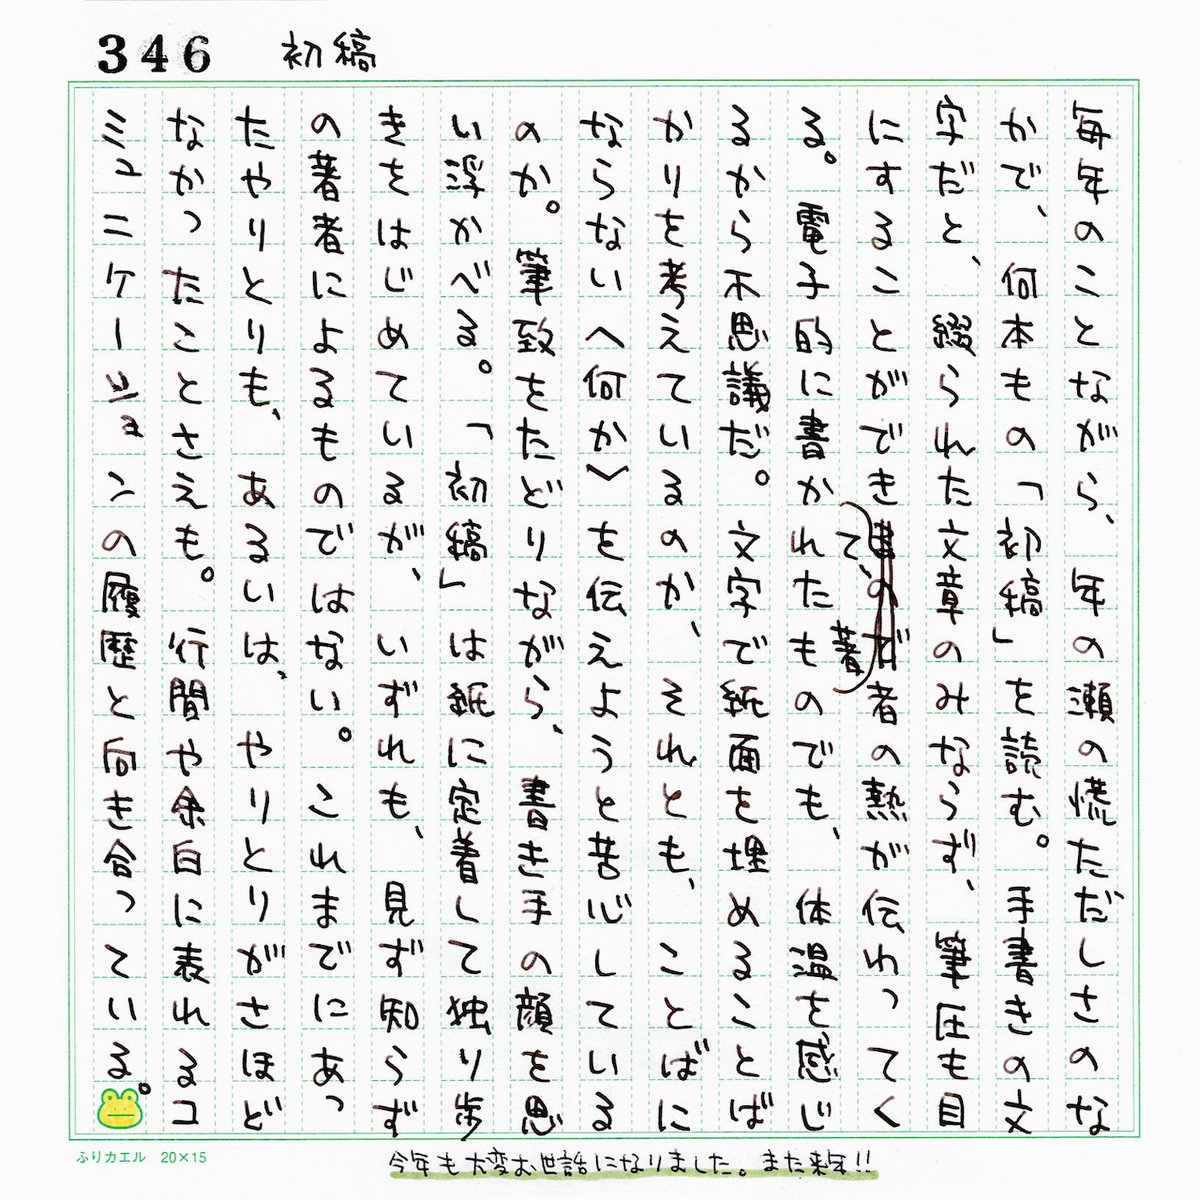 346 初稿
毎年のことながら、年の瀬の慌ただしさのな
かで、何本もの「初稿」を読む。手書きの文
字だと、綴られた文章のみならず、筆圧も目
にすることができて、著者の熱が伝わってく
る。電子的に書かれたものでも、体温を感じ
るから不思議だ。文字で紙面を埋めることば
かりを考えているのか、それとも、ことばに
ならない〈何か〉を伝えようと苦心している
のか。筆致をたどりながら、書き手の顔を思
い浮かべる。「初稿」は紙に定着して独り歩
きをはじめているが、いずれも、見ず知らず
の著者によるものではない。これまでにあっ
たやりとりも、あるいは、やりとりがさほど
なかったことさえも。行間や余白に表れるコ
ミュニケーションの履歴と向き合っている。
ふりカエル 20×15
今年も大変お世話になりました。また来年!!